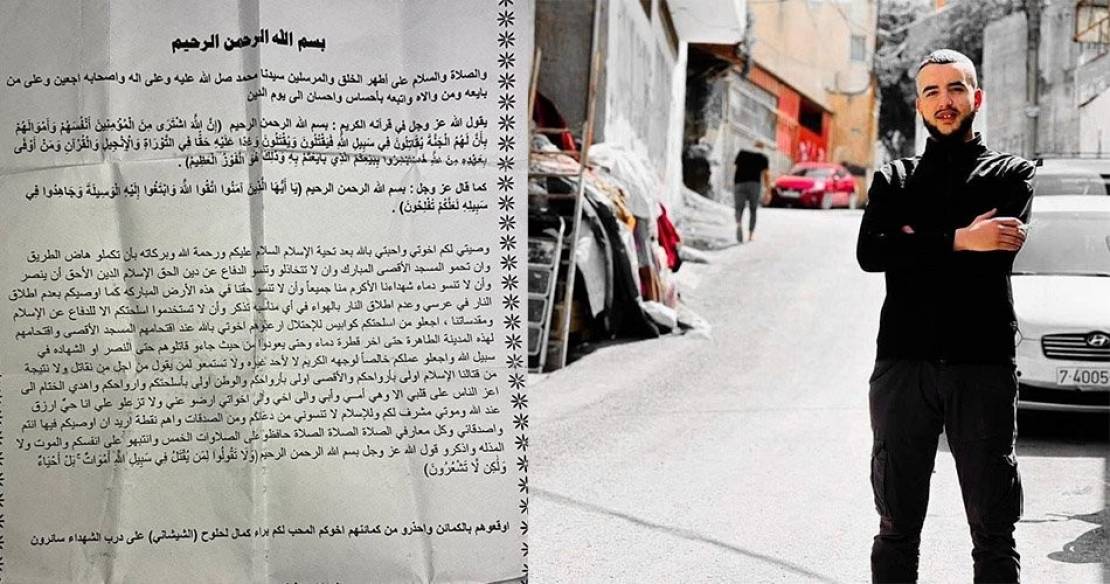 بسم الله الرحمن الرحيم
والصلاة والسلام على اطهر الخلق والمرسلين سيدنا محمد صل الله عليه وعلى اله واصحابه اجعين وعلى من
بايعه ومن والاه واتبعه بأحساس واحسان الى يوم الدين
يقول الله عز وجل في قرآنه الكريم : بسم الله الرحمن الرحيم (إِنَّ اللَّهَ اشْتَرَى مِنَ الْمُؤْمِنِينَ أَنْفُسَهُمْ وَأَمْوَالَهُمْ
بِأَنَّ لَهُمُ الْجَنَّةَ يُقَاتِلُونَ فِي سَبِيلِ اللَّهِ فَيَقْتُلُونَ وَيُقْتَلُونَ وَعْدًا عَلَيْهِ حَقًّا فِي التَّوْرَاةِ وَالْإِنْجِيلِ وَالْقُرْآنِ وَمَنْ أَوْفَى
بِعَهْدِهِ مِنَ اللَّهِ فَاسْتَبْشِرُوا بِبَيْعِكُمُ الَّذِي بَايَعْتُمْ بِهِ وَذَلِكَ هُوَ الْفَوْزُ الْعَظِيمُ) .
كما قال عز وجل : بسم الله الرحمن الرحيم (يَا أَيُّهَا الَّذِينَ آمَنُوا اتَّقُوا اللَّهَ وَابْتَغُوا إِلَيْهِ الْوَسِيلَةَ وَجَاهِدُوا فِي
سَبِيلِهِ لَعَلَّكُمْ تُفْلِحُونَ) .
وصيتي لكم اخوتي واحبتي بالله بعد تحية الإسلام السلام عليكم ورحمة الله وبركاته بأن تكملو هاض الطريق
وان تحمو المسجد الأقصى المبارك وان لا تتخاذلو وتنسو الدفاع عن دين الحق الإسلام الدين الأحق أن ينصر
وأن لا تنسو دماء شهداءنا الأكرم منا جميعاً وأن لا تنسو حقنا في هذه الأرض المباركه كما اوصيكم بعدم اطلاق
النار في عرسي وعدم اطلاق النار بالهواء في أي مناسبة تذكر وأن لا تستخدموا اسلحتكم الا للدفاع عن الإسلام
ومقدساتنا ، اجعلو من اسلحتكم كوابيس للإحتلال ارعبوهم اخوتي بالله عند اقتحامهم المسجد الأقصى واقتحامهم
لهذه المدينة الطاهرة حتى اخر قطرة دماء وحتى يعودوا من حيث جاءو قاتلوهم حتى النصر او الشهاده في
سبيل الله واجعلو عملكم خالصاً لوجهه الكريم لا لأحد غيره ولا تستمعو لمن يقول من اجل من نقاتل ولا نتيجة
من قتالنا الإسلام اولى بأرواحكم والأقصى اولى بأرواحكم والوطن أولى بأسلحتكم وارواحكم واهدي الختام الى
اعز الناس على قلبي الا وهي أمي وأبي والى اخي والى اخواتي ارضو عني ولا تزعلو علي انا حيٌ ارزق
عند الله وموتي مشرف لكم وللإسلام لا تنسوني من دعائكم ومن الصدقات واهم نقطة أريد ان اوصيكم فيها انتم
واصدقائي وكل معارفي الصلاة الصلاة الصلاة حافظو على الصلاوات الخمس وانتبهو على انفسكم والموت ولا
المذله واذكرو قول الله عز وجل بسم الله الرحمن الرحيم (وَلَا تَقُولُوا لِمَن يُقْتَلُ فِي سَبِيلِ اللَّهِ أَمْوَاتٌ ۚ بَلْ أَحْيَاءٌ
وَلَٰكِن لَّا تَشْعُرُونَ)
اوقعوهم بالكمائن واحذرو من كمائنهم اخوكم المحب لكم براء كمال لحلوح (الشيشاني) على درب الشهداء سائرون
7·4005